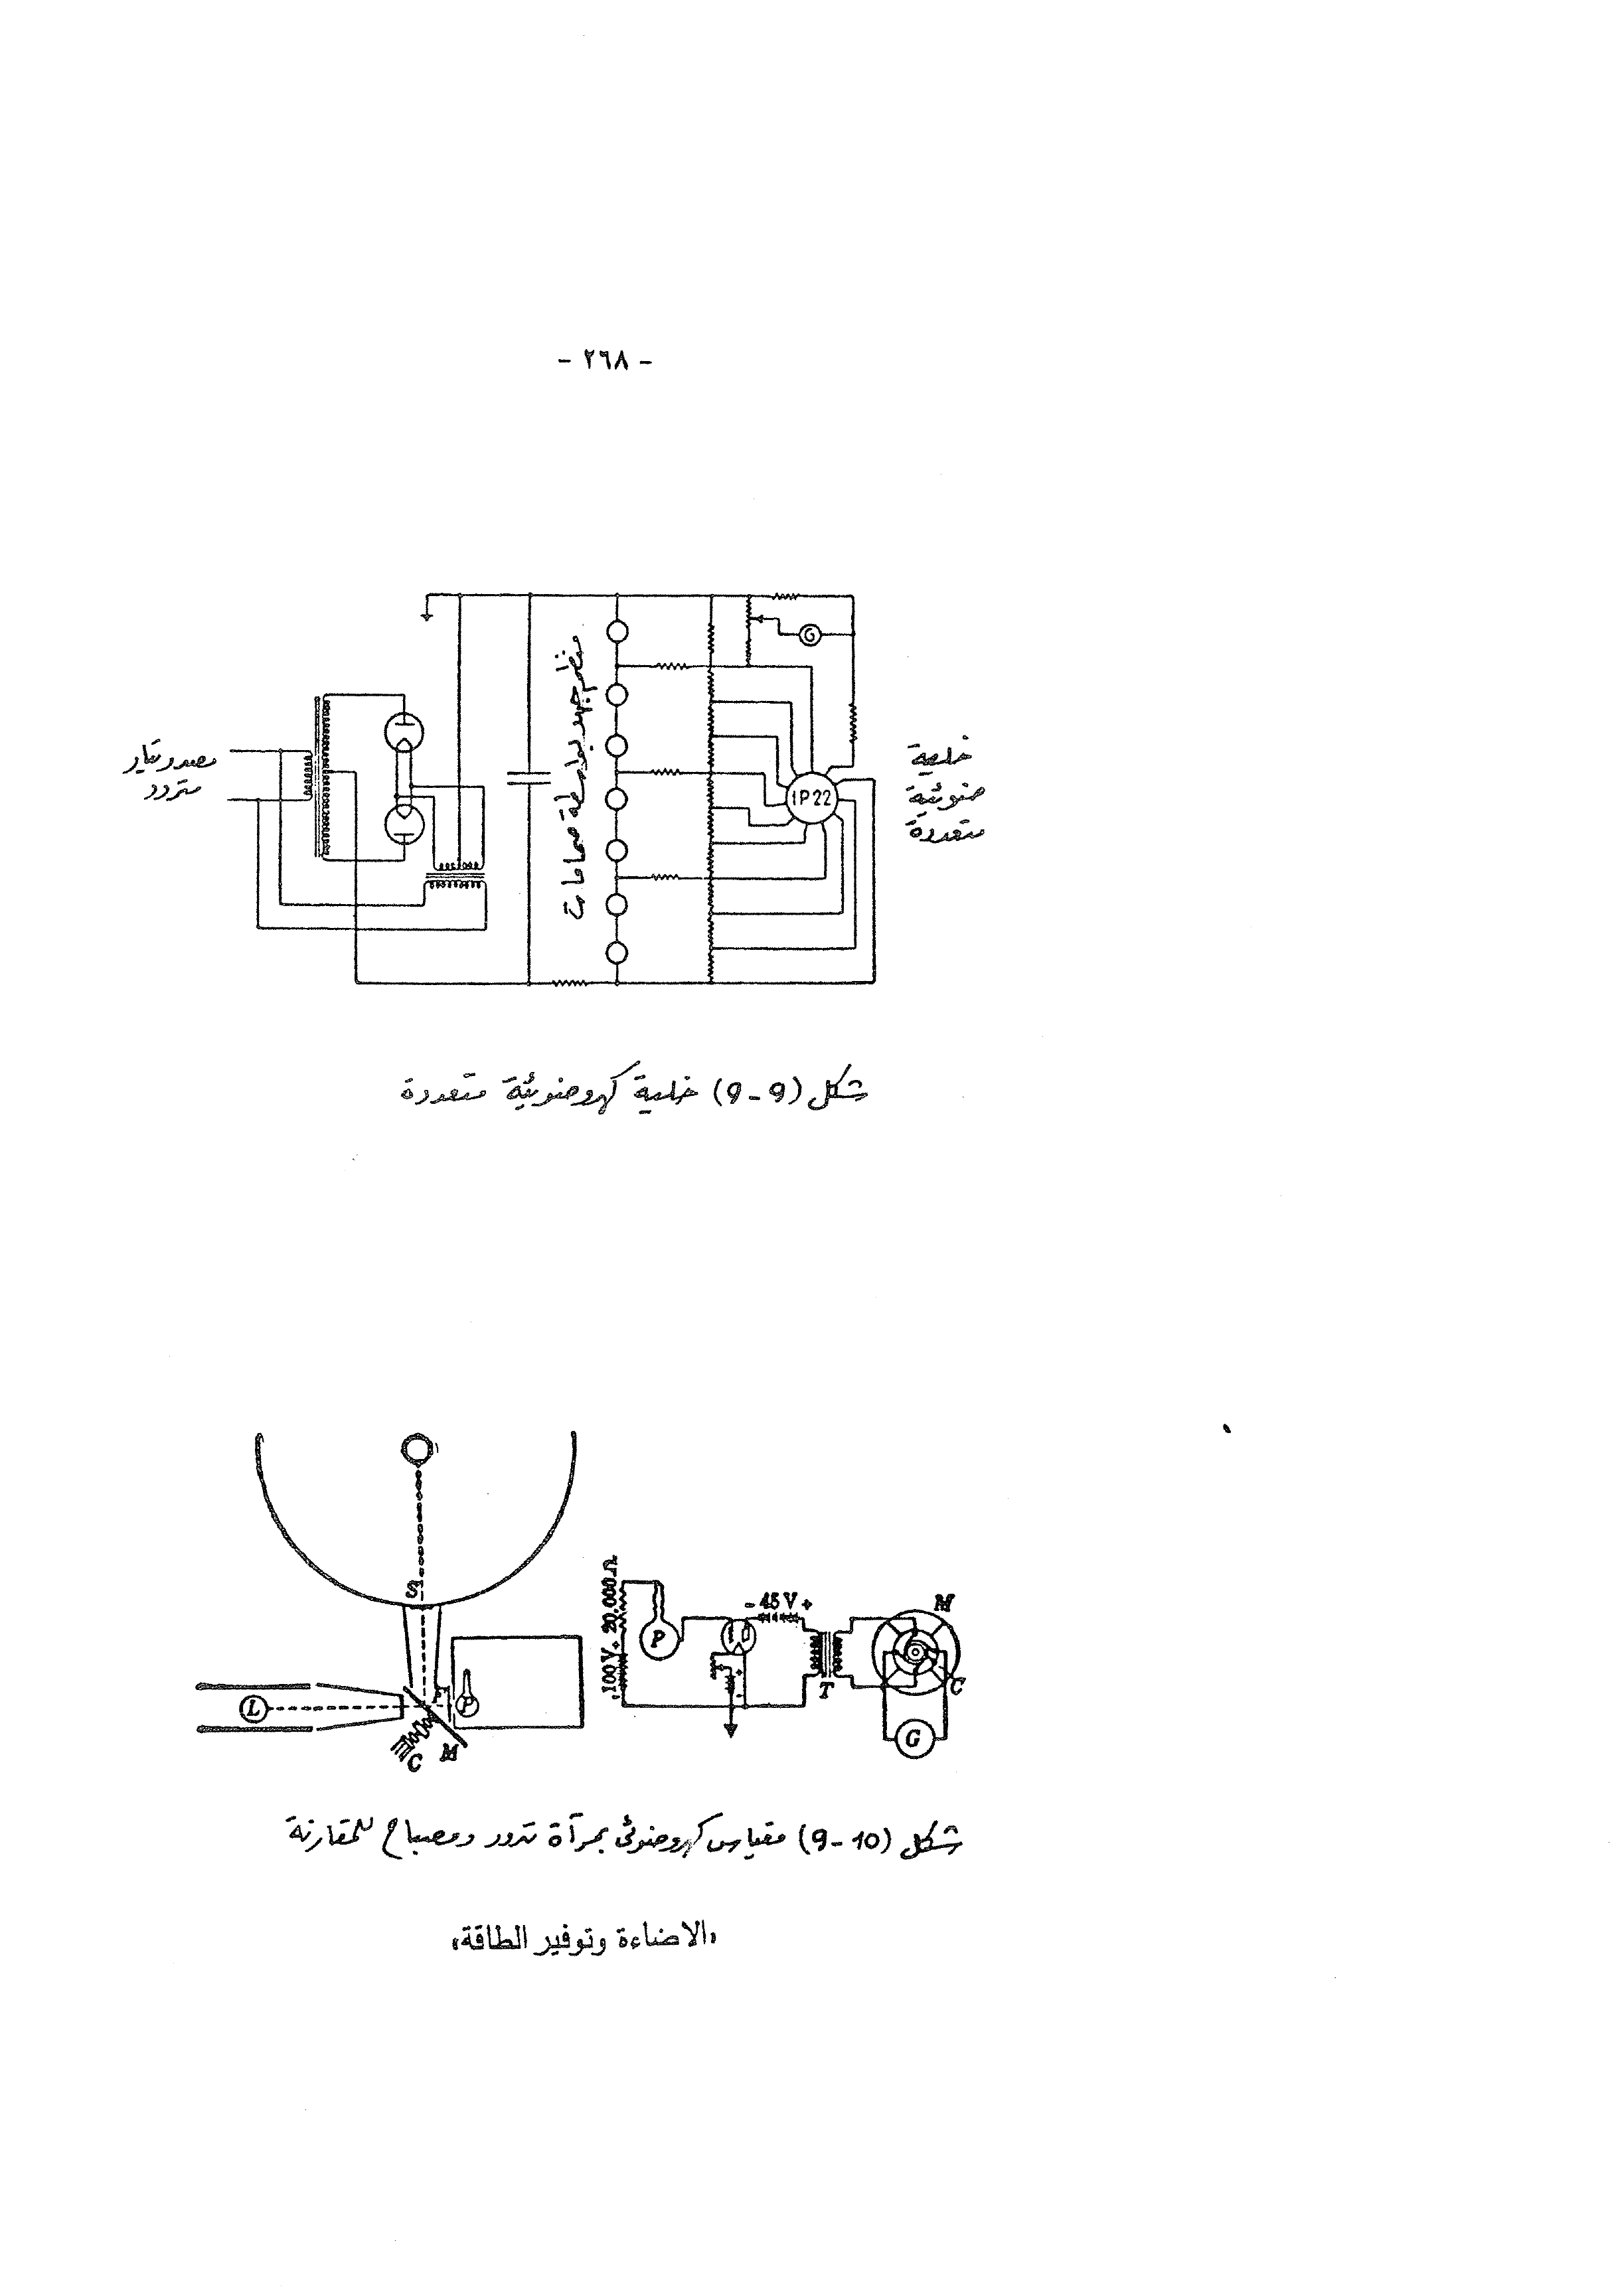 - ٢٦٨ -
G
مصدر تيار
متردد
منظم جهد بواسطة صمامات
1P22
خلية
ضوئية
متعددة
شكل (9-9) خلية كهروضوئية متعددة
S
L
F
P
C
M
100V+ 20.000Ω
P
- 45 V +
T
M
C
G
شكل (10-9) مقياس كهروضوئى بمرآة تدور ومصباح للمقارنة
«الاضاءة وتوفير الطاقة»